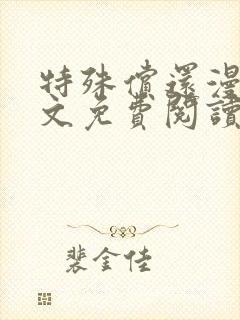 特殊償還漫
文免費閱讀
裴金佳